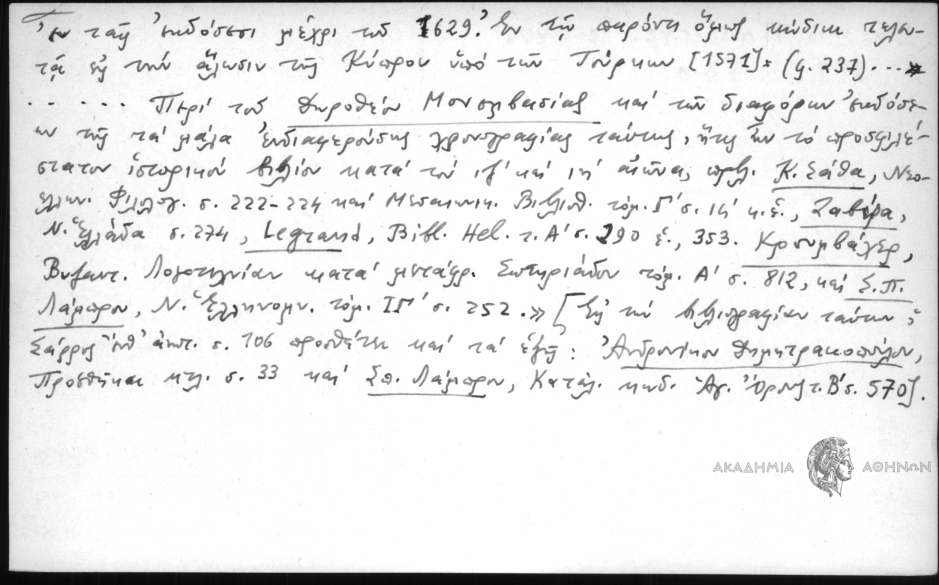 ἐν ταῖς ἐκδόσεσι μέχρι τοῦ 1629. Ἐν τῷ παρόντι ὅμως κώδικι τελευ-
τᾷ εἰς τὴν ἅλωσιν τῆς Κύπρου ὑπὸ τῶν Τούρκων [1571]. (φ. 237)...
..... Περὶ τοῦ Δωροθέου Μονεμβασίας καὶ τῶν διαφόρων ἐκδόσε-
ων τῆς τὰ μάλα ἐνδιαφερούσης χρονογραφίας ταύτης, ἥτις ἦν τὸ προσφιλέ-
στατον ἱστορικὸν βιβλίον κατὰ τὸν ιζ' καὶ ιη' αἰῶνα, πρβλ. Κ. Σάθα, Νεο-
ελλην. Φιλολογ. σ. 222-224 καὶ Μεσαιων. Βιβλιοθ. τόμ. Γ' σ. ιϛ' κ.ἑ., Ζαβίρα,
Ν. Ἑλλάδα σ. 274, Legrand, Bibl. Hel. τ. Α' σ. 290 ἑ., 353. Κρουμβάχερ,
Βυζαντ. Λογοτεχνίαν κατὰ μετάφρ. Σωτηριάδου τόμ. Α' σ. 812, καὶ Σ.Π.
Λάμπρου, Ν. Ἑλληνομν. τόμ. ΙΓ' σ. 252.» [Εἰς τὴν βιβλιογραφίαν ταύτην ὁ
Σάρρος ἐνθ' ἀνωτ. σ. 106 προσθέτει καὶ τὰ ἑξῆς: Ἀνδρονίκου Δημητρακοπούλου,
Προσθῆκαι κτλ. σ. 33 καὶ Σπ. Λάμπρου, Κατάλ. κωδ. Ἁγ. Ὄρους τ. Β' σ. 570].
ΑΚΑΔΗΜΙΑ ΑΘΗΝΩΝ